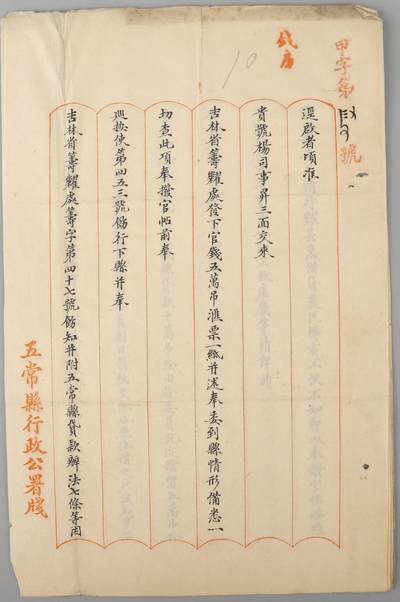 甲字第 號
錢房
10
逕啟者頃准
貴號楊司事昇三面交來
吉林省籌糶處發下官錢五萬吊滙票一紙并述奉委到縣情形備悉一
切查此項奉撥官帖前奉
巡按使第四五三號飭行下縣并奉
吉林省籌糶處籌字第四十七號飭知并附五常縣貸款辦法七條等因
五常縣行政公署牋